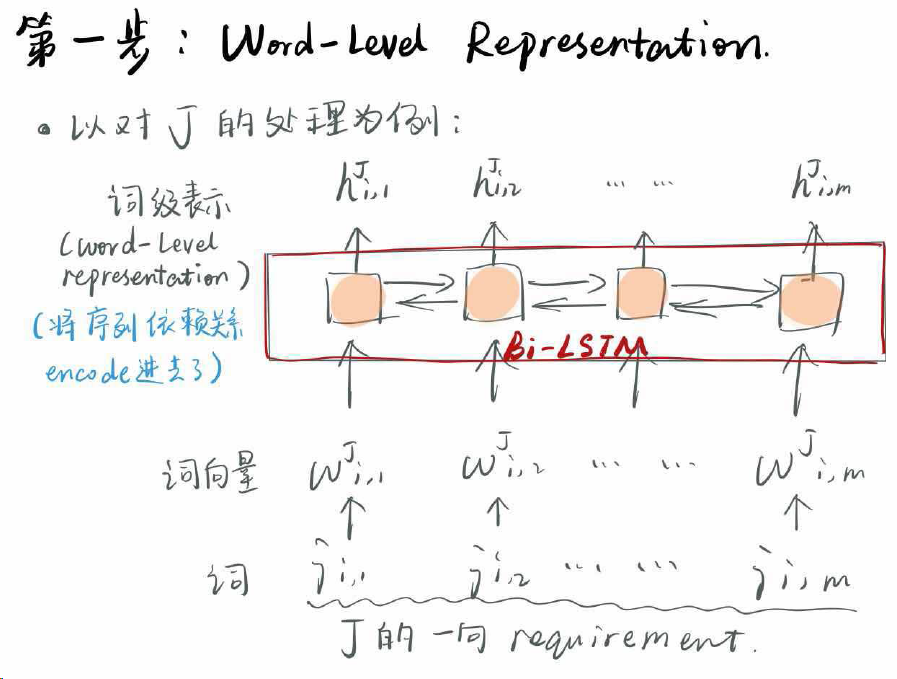 第一步：Word-Level Representation.
• 以对 J 的处理为例：
词级表示
(word-level
representation)
(将序列依赖关系
encode进去了)
h^J_{i,1} h^J_{i,2} ... ... h^J_{i,m}
Bi-LSTM
词向量 w^J_{i,1} w^J_{i,2} ... ... w^J_{i,m}
词 j_{i,1} j_{i,2} ... ... j_{i,m}
J的一句 requirement.